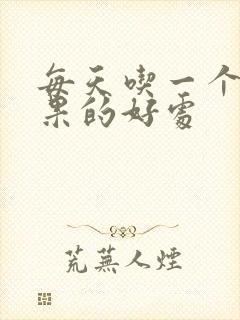 每天喫一个
果的好處
荒蕪人煙